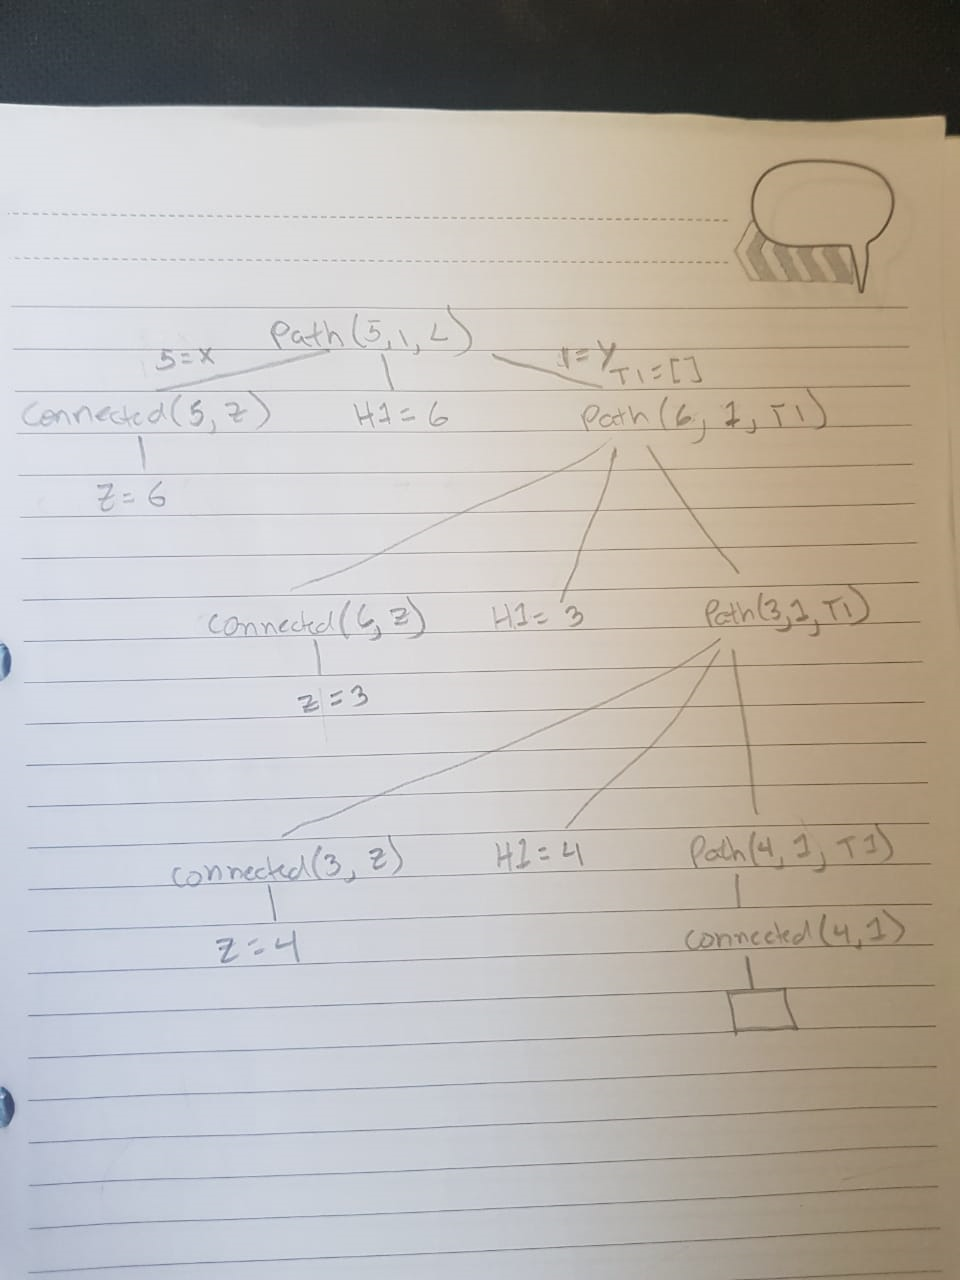 Path(5,1,L)
5=X
1=Y
T1=[]
Connected(5,Z)
H1=6
Path(6,1,T1)
Z=6
Connected(6,Z)
H1=3
Path(3,1,T1)
Z=3
Connected(3,Z)
H1=4
Path(4,1,T1)
Z=4
Connected(4,1)